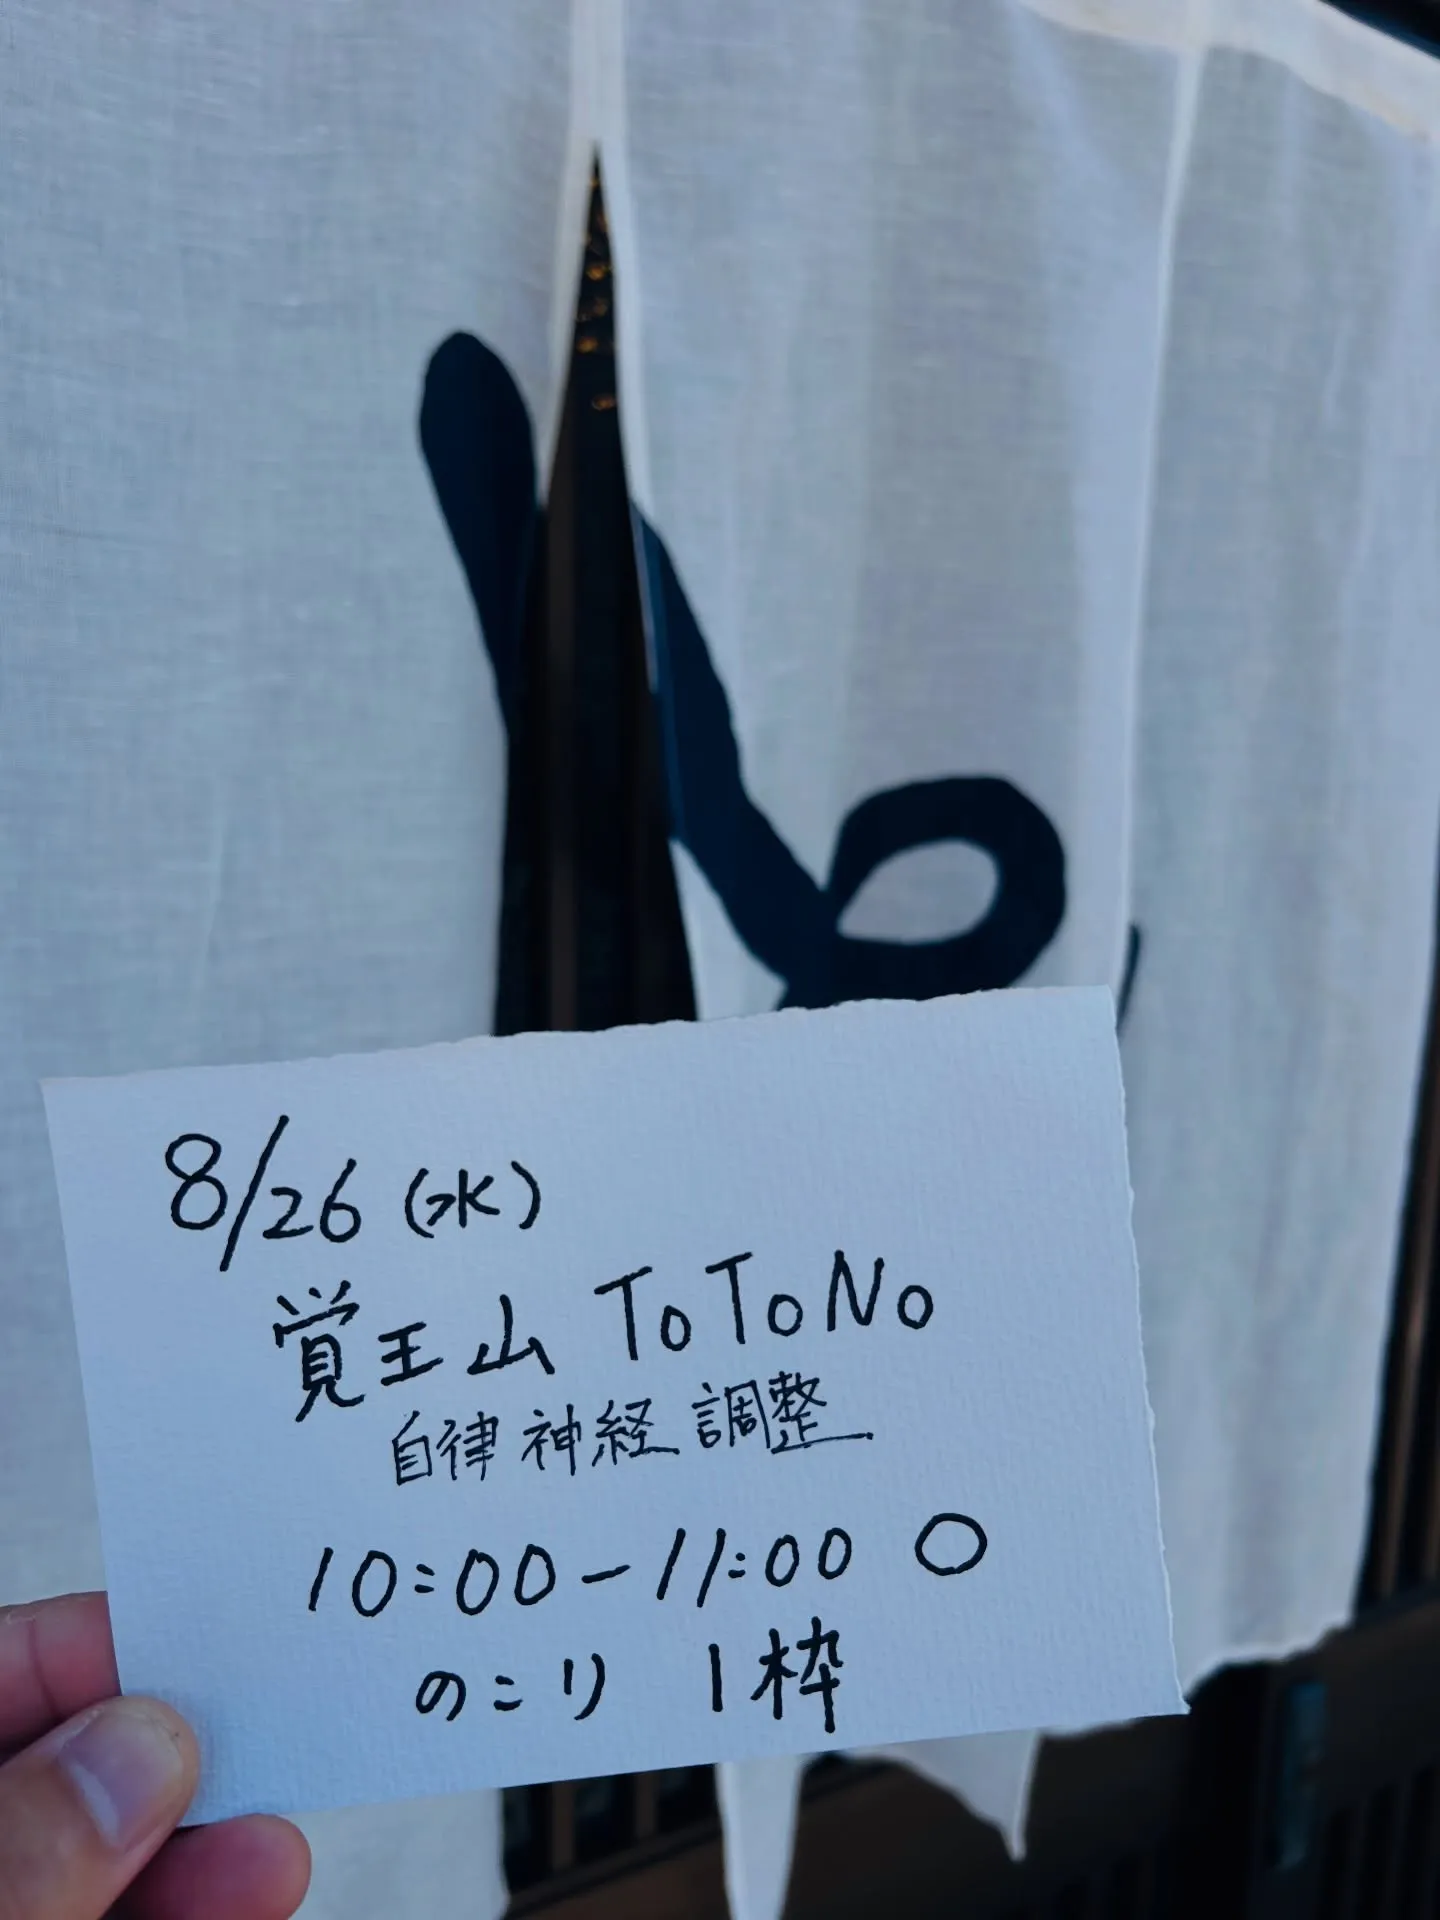 8/26(水)
覚王山 ToToNo
自律神経調整
10:00-11:00 ○
のこり 1枠